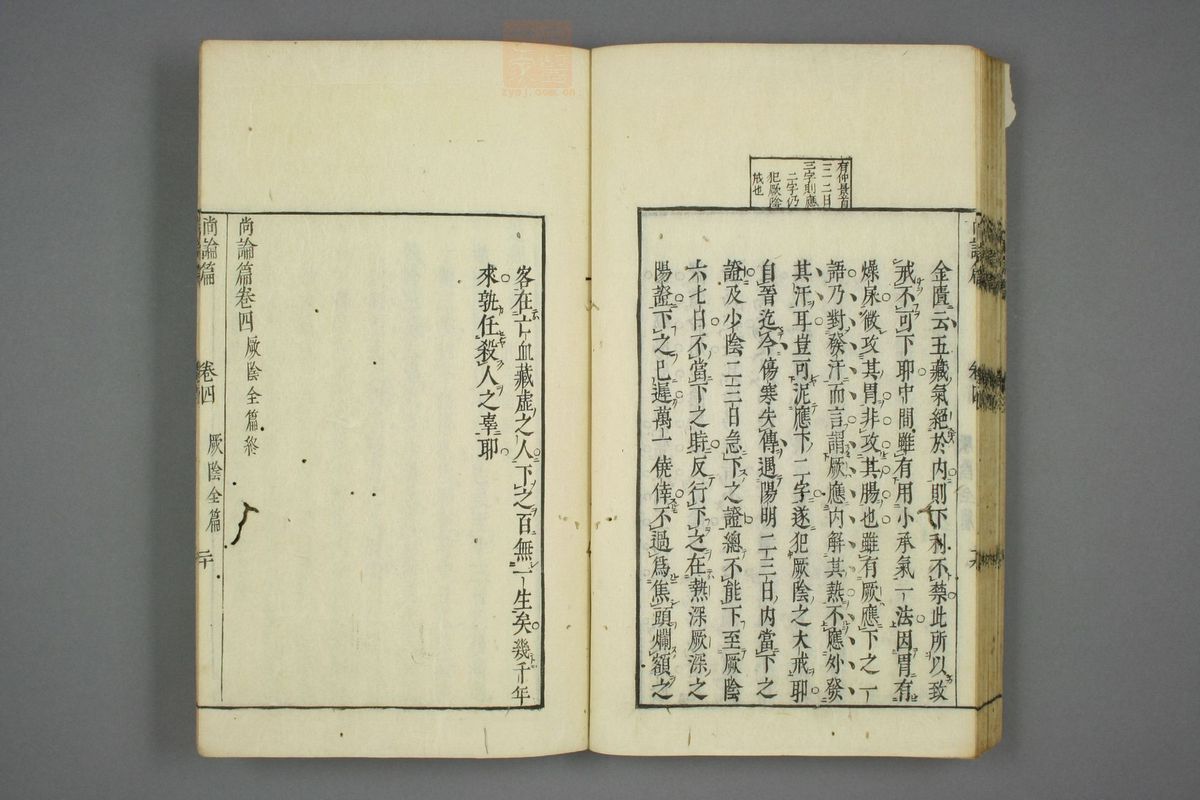 有仲景首
三一二日
三字則應
二字仍
犯厥陰
戒也
金匱云五藏氣絕於内則下利不禁此所以致
戒不可下耶中間雖有用小承氣一法因胃有
燥屎微攻其胃非攻其腸也雖有厥應下之一
語乃對發汗而言謂厥應内解其熱不應外發
其汗耳豈可泥應下二字遂犯厥陰之大戒耶
自晉迄今傷寒失傳遇陽明二三日内當下之
證及少陰二三日急下之證總不能下至厥陰
六七日不當下之時反行下之在熱深厥深之
陽證下之已遲萬一僥倖不過為焦頭爛額之
客在亡血藏虛之人下之百無一生矣幾千年
來孰任殺人之辜耶
尚論篇卷四厥陰全篇終
尚論篇 卷四 厥陰全篇 二十
zygj.com.cn